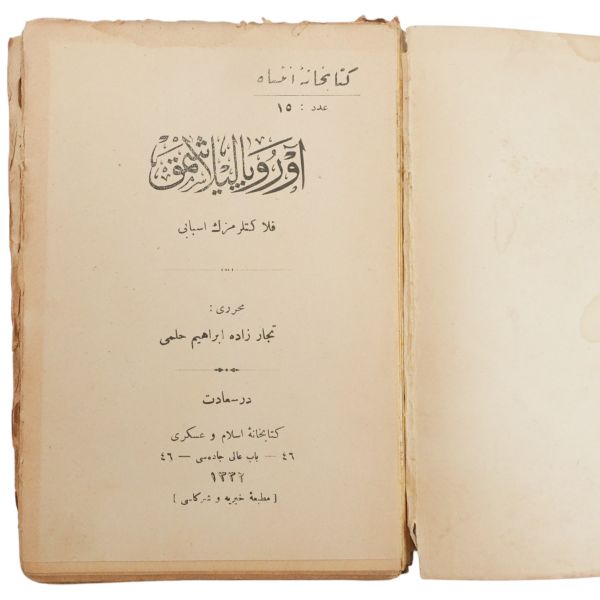 كتابخانهٔ انتباه
عدد : ١٥
آوروپالیلاشمق
فلاكتلرمزك اسبابی
محرری :
تجار زاده ابراهیم حلمی
در سعادت
كتابخانهٔ اسلام و عسكری
٤٦ — باب عالی جاده‌سی — ٤٦
١٣٣٢
[ مطبعهٔ خیریه و شركاسی ]